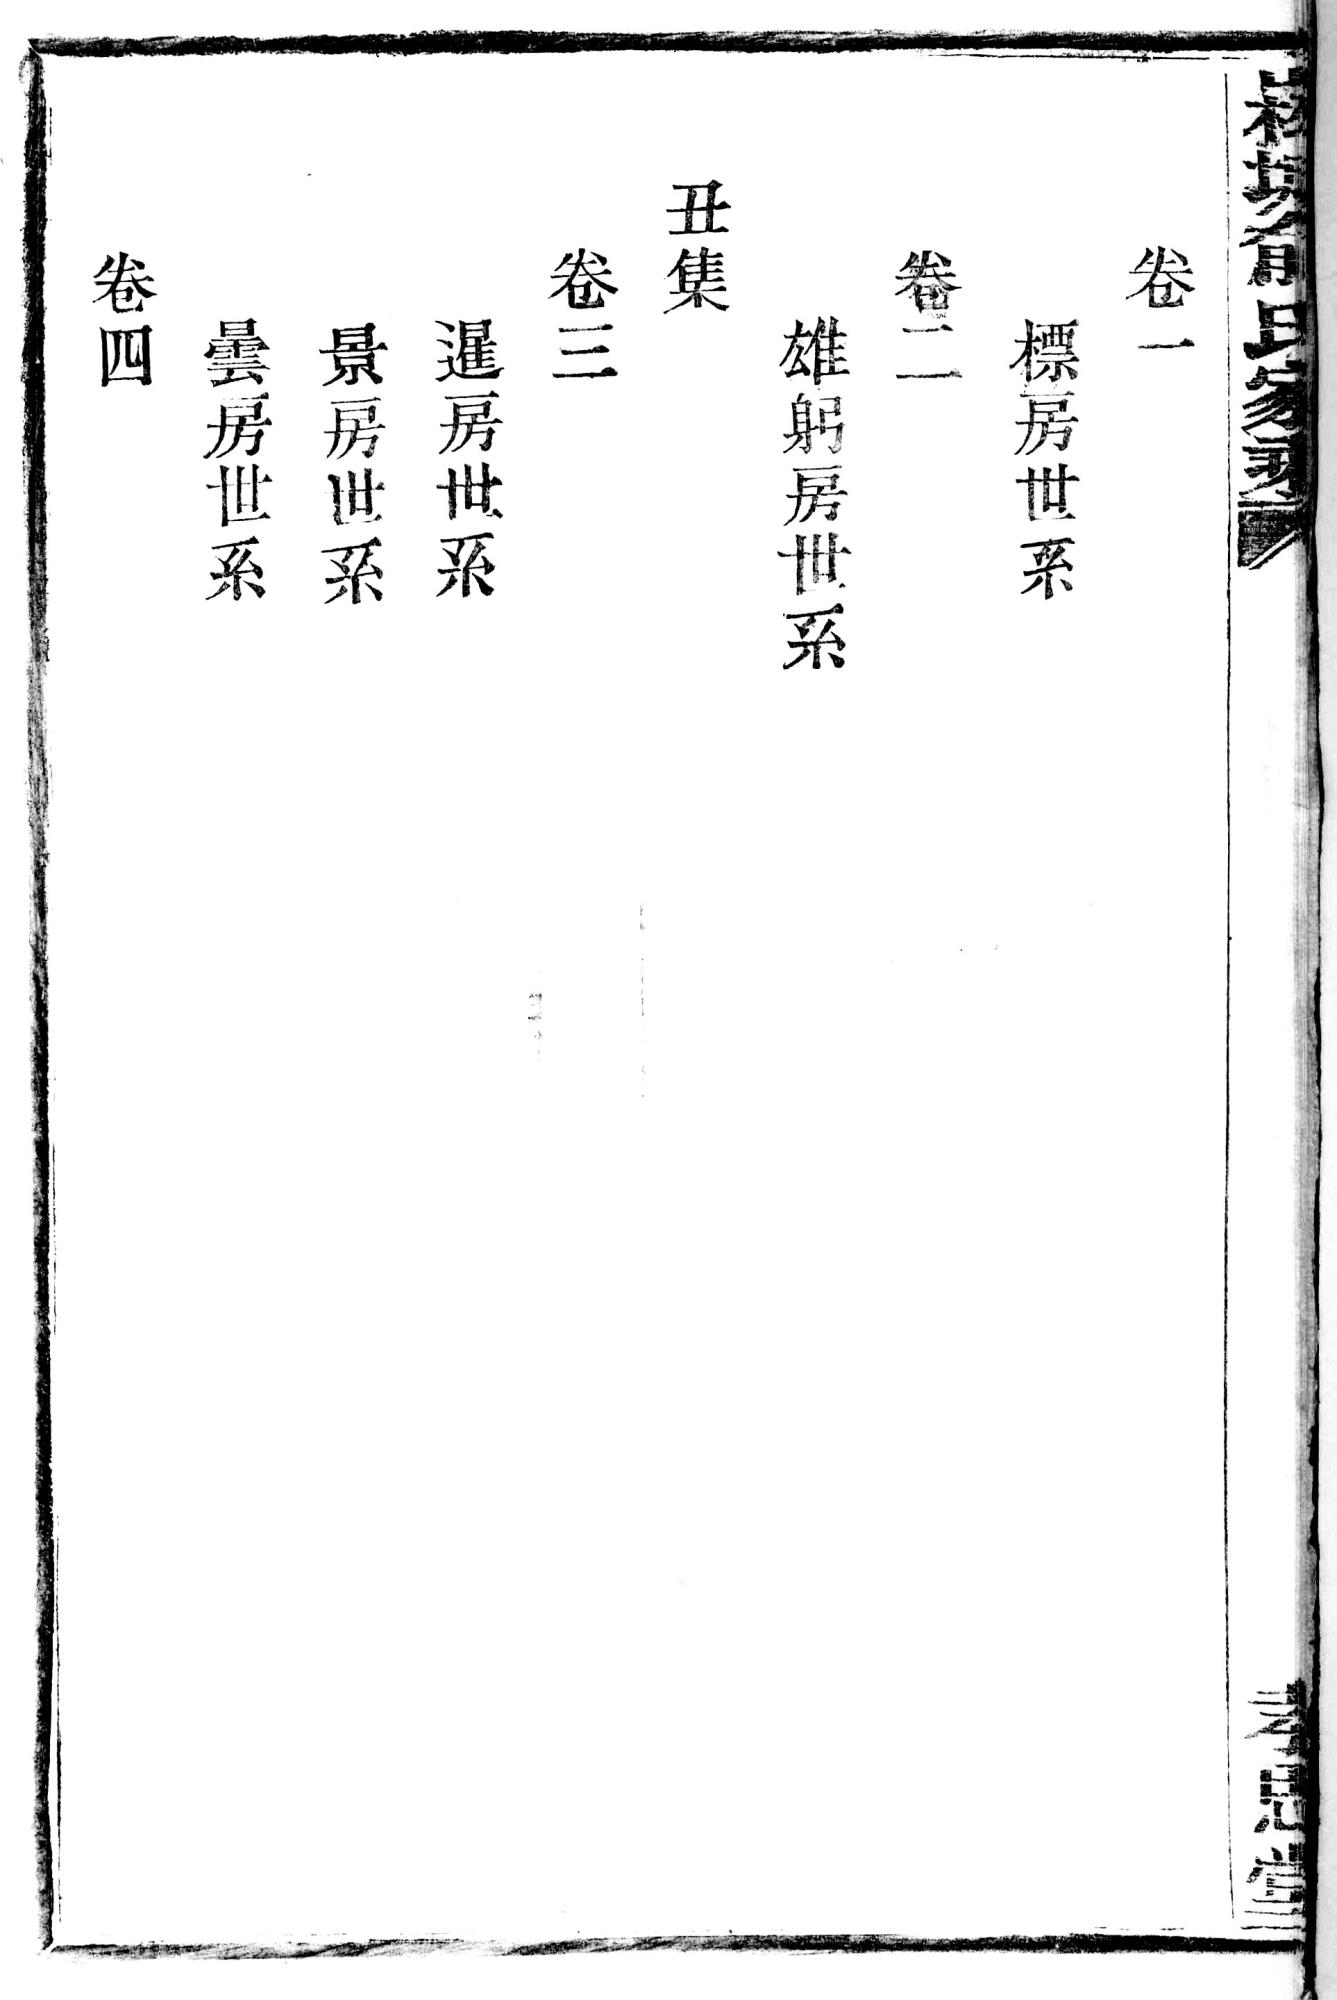 氏家乘
孝思堂
卷一
標房世系
卷二
雄躬房世系
丑集
卷三
暹房世系
景房世系
曇房世系
卷四